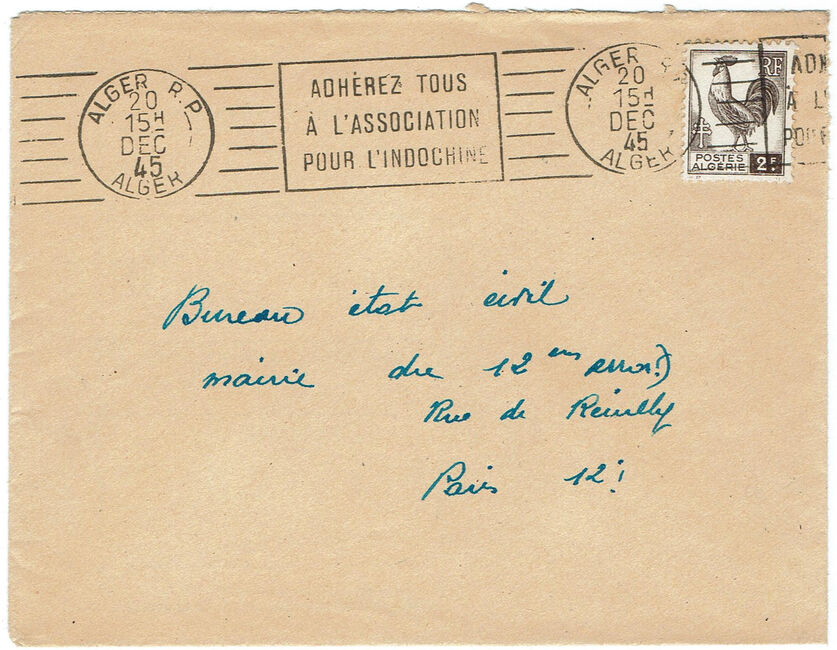 ALGER R.P
20
15H
DEC
45
ALGER
ADHÉREZ TOUS
À L'ASSOCIATION
POUR L'INDOCHINE
ALGER
20
15H
DEC
45
ALGER
RF
POSTES
ALGÉRIE
2F
ADH
À L'
POUR
Bureau état civil
mairie du 12 em arron!)
Rue de Reuilly
Paris 12!